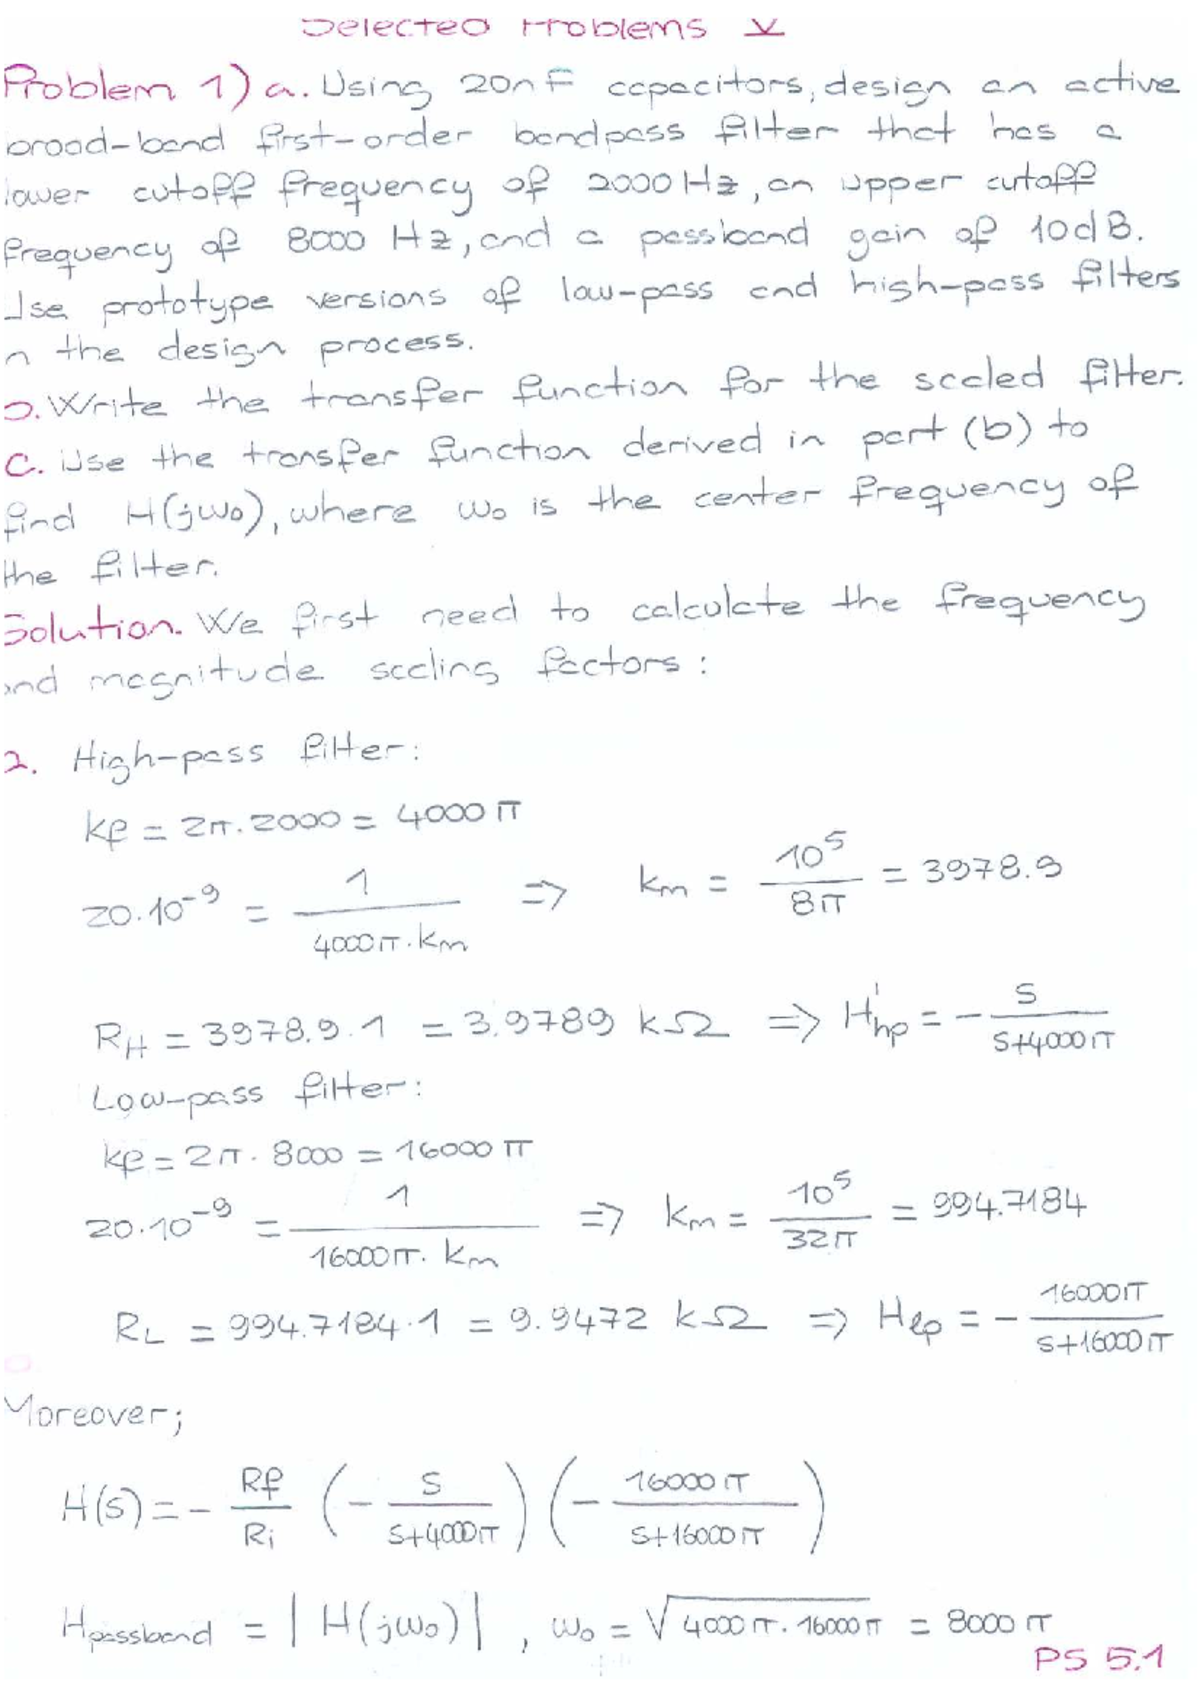 Selected Problems V
Problem 1) a. Using 20nF capacitors, design an active
broad-band first-order bandpass filter that has a
lower cutoff frequency of 2000 Hz, an upper cutoff
frequency of 8000 Hz, and a passband gain of 10dB.
Use prototype versions of low-pass and high-pass filters
n the design process.
b. Write the transfer function for the scaled filter.
c. Use the transfer function derived in part (b) to
find H(jω₀), where ω₀ is the center frequency of
the filter.
Solution. We first need to calculate the frequency
and magnitude scaling factors:
a. High-pass filter:
kf = 2π.2000 = 4000π
20.10⁻⁹ = 1 / (4000π.km) => km = 10⁵ / 8π = 3978.9
RH = 3978.9.1 = 3.9789 kΩ => H'hp = - s / (s+4000π)
Low-pass filter:
kf = 2π. 8000 = 16000π
20.10⁻⁹ = 1 / (16000π. km) => km = 10⁵ / 32π = 994.7184
RL = 994.7184.1 = 9.9472 kΩ => Hlp = - 16000π / (s+16000π)
Moreover;
H(s) = - Rf / Ri (- s / (s+4000π)) (- 16000π / (s+16000π))
Hpassband = |H(jω₀)|, ω₀ = √(4000π. 16000π) = 8000π
PS 5.1